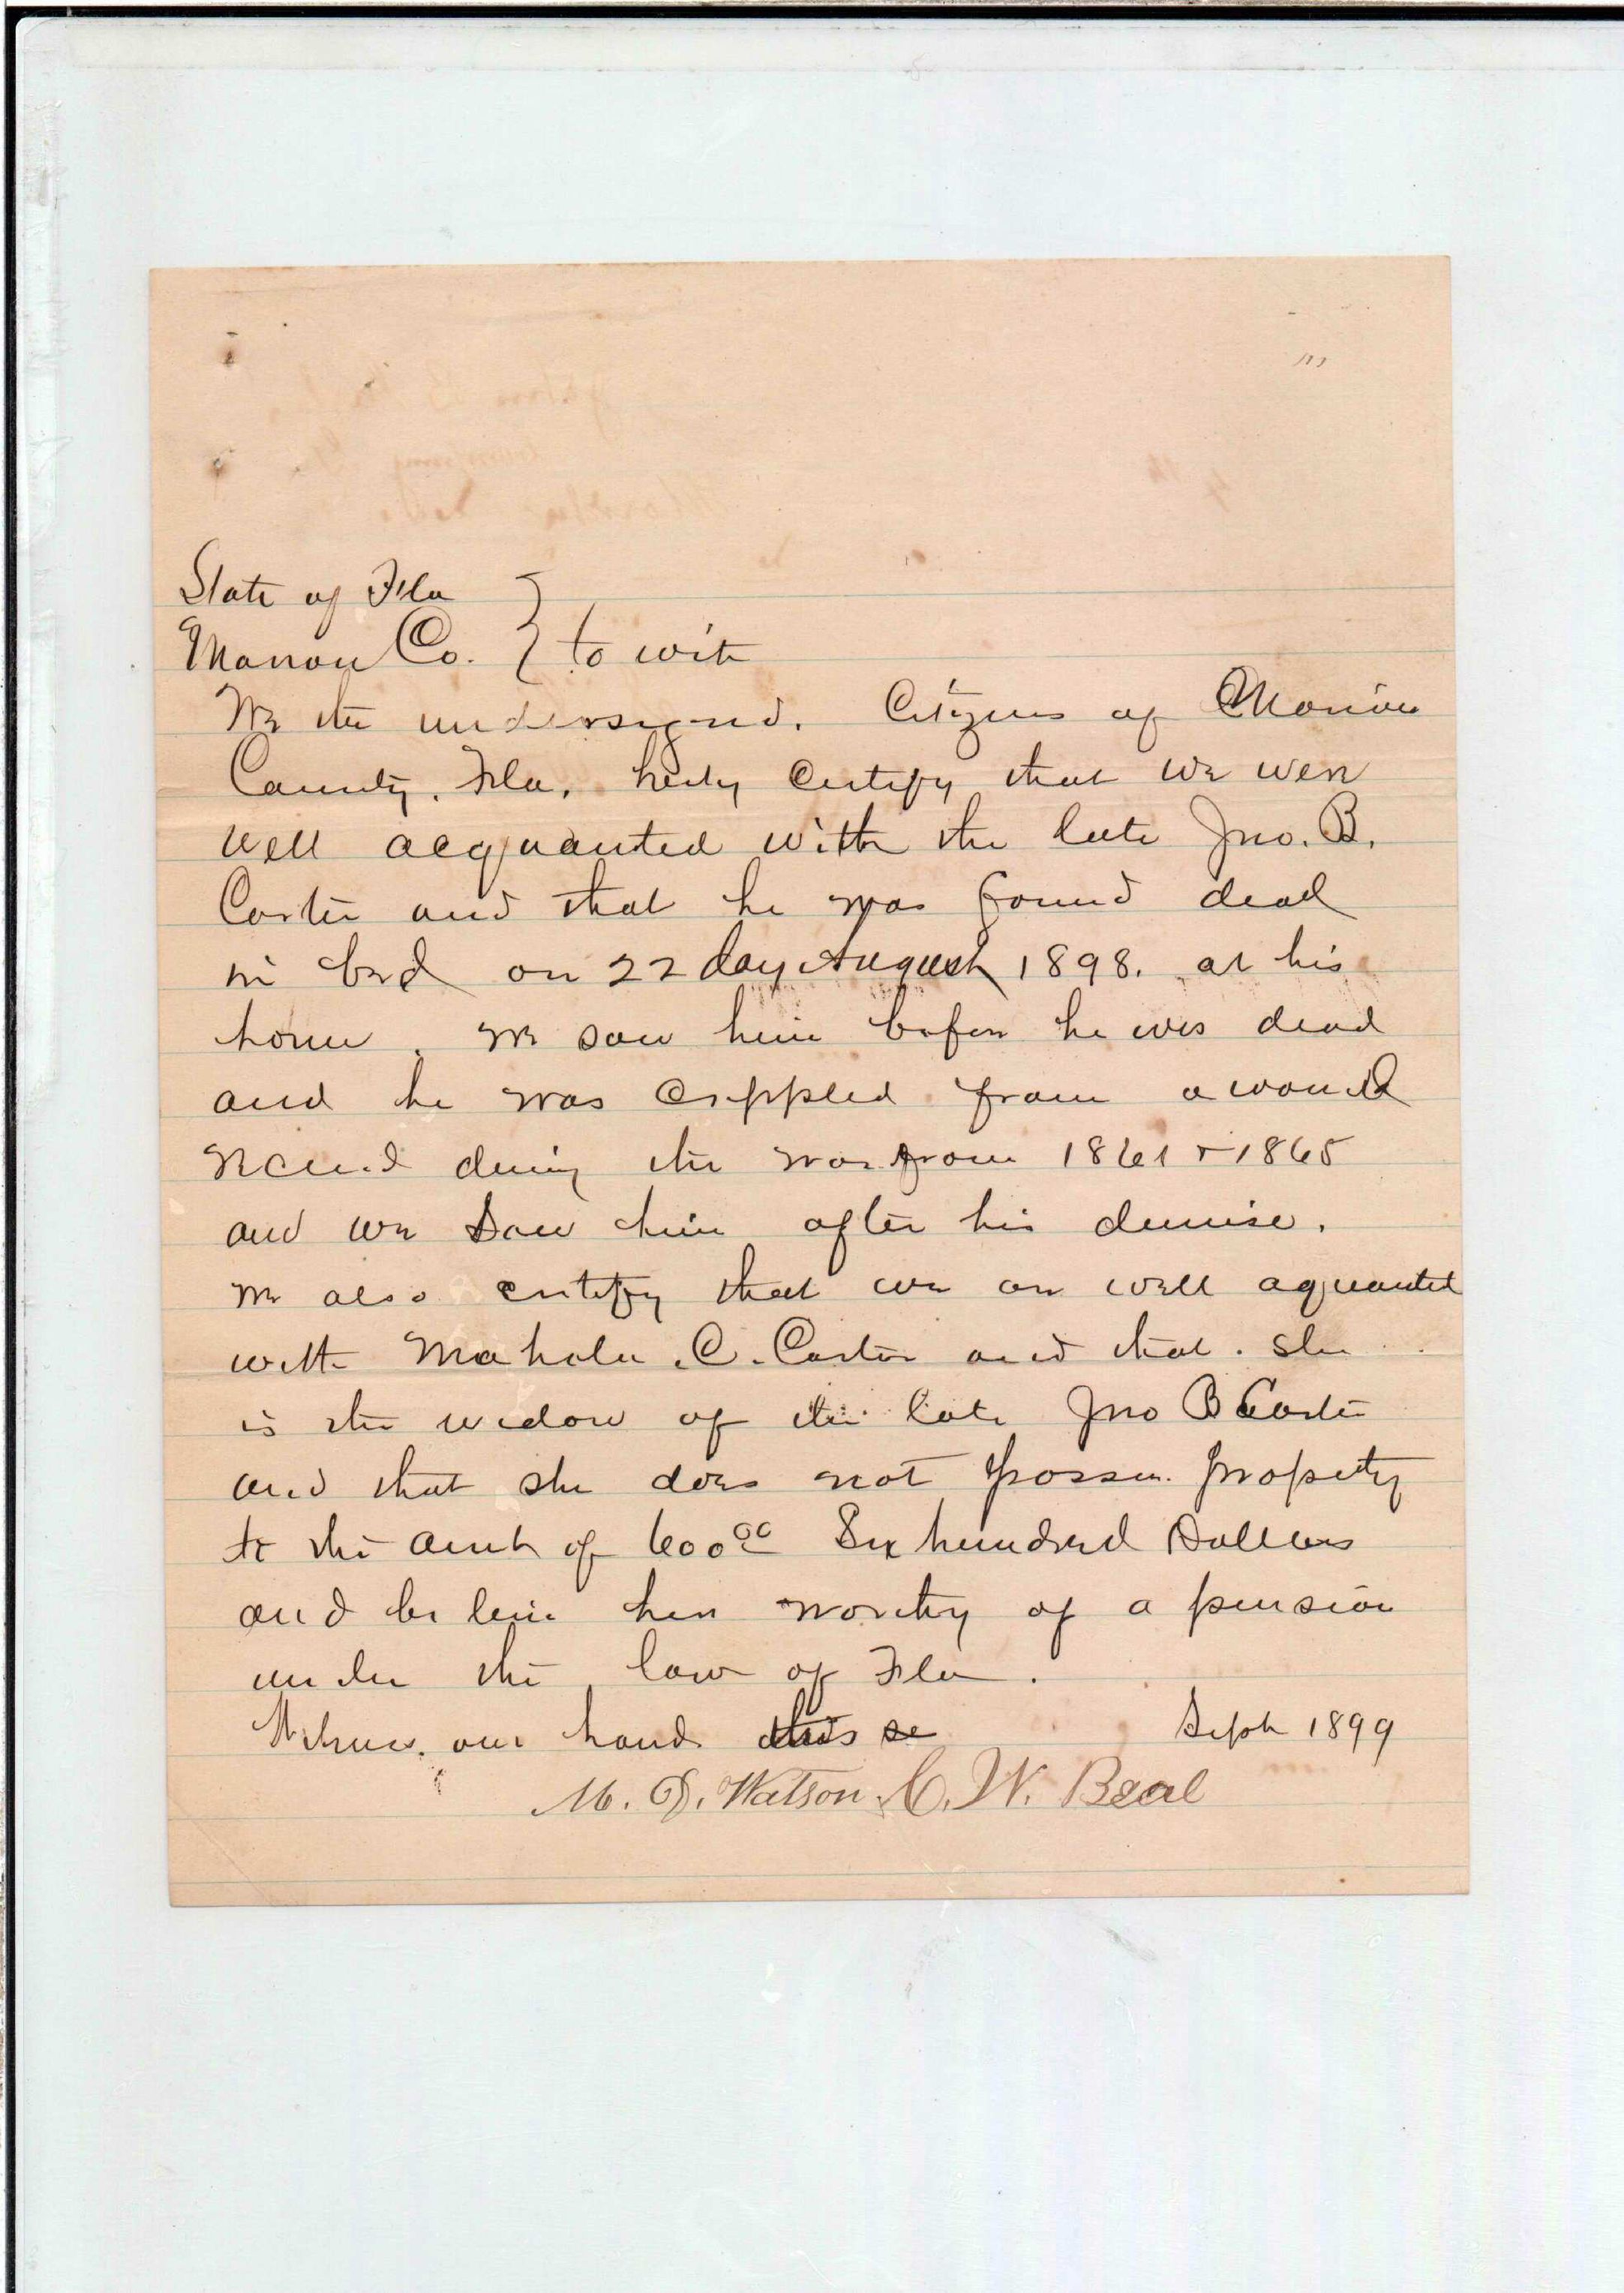 State of Fla
Marion Co. } to wit
We the undersigned. Citizens of Marion
County, Fla, herby Certify that we were
well acquanted with the late Jno. B.
Carter and that he was found dead
in bed on 22 day August 1898. at his
home. We saw him before he was dead
and he was crippled from a wound
recied during the war from 1861 & 1865
and we saw him after his demise.
We also certify that we are well aquanted
with Mahala C. Carter and that she
is the widow of the late Jno B Carter
and that she does not possess property
to the amt of 600 00 Six hundred Dollars
and believe her worthy of a pension
under the law of Fla.
Witness our hand this Sept 1899
M. D. Watson C. W. Beal